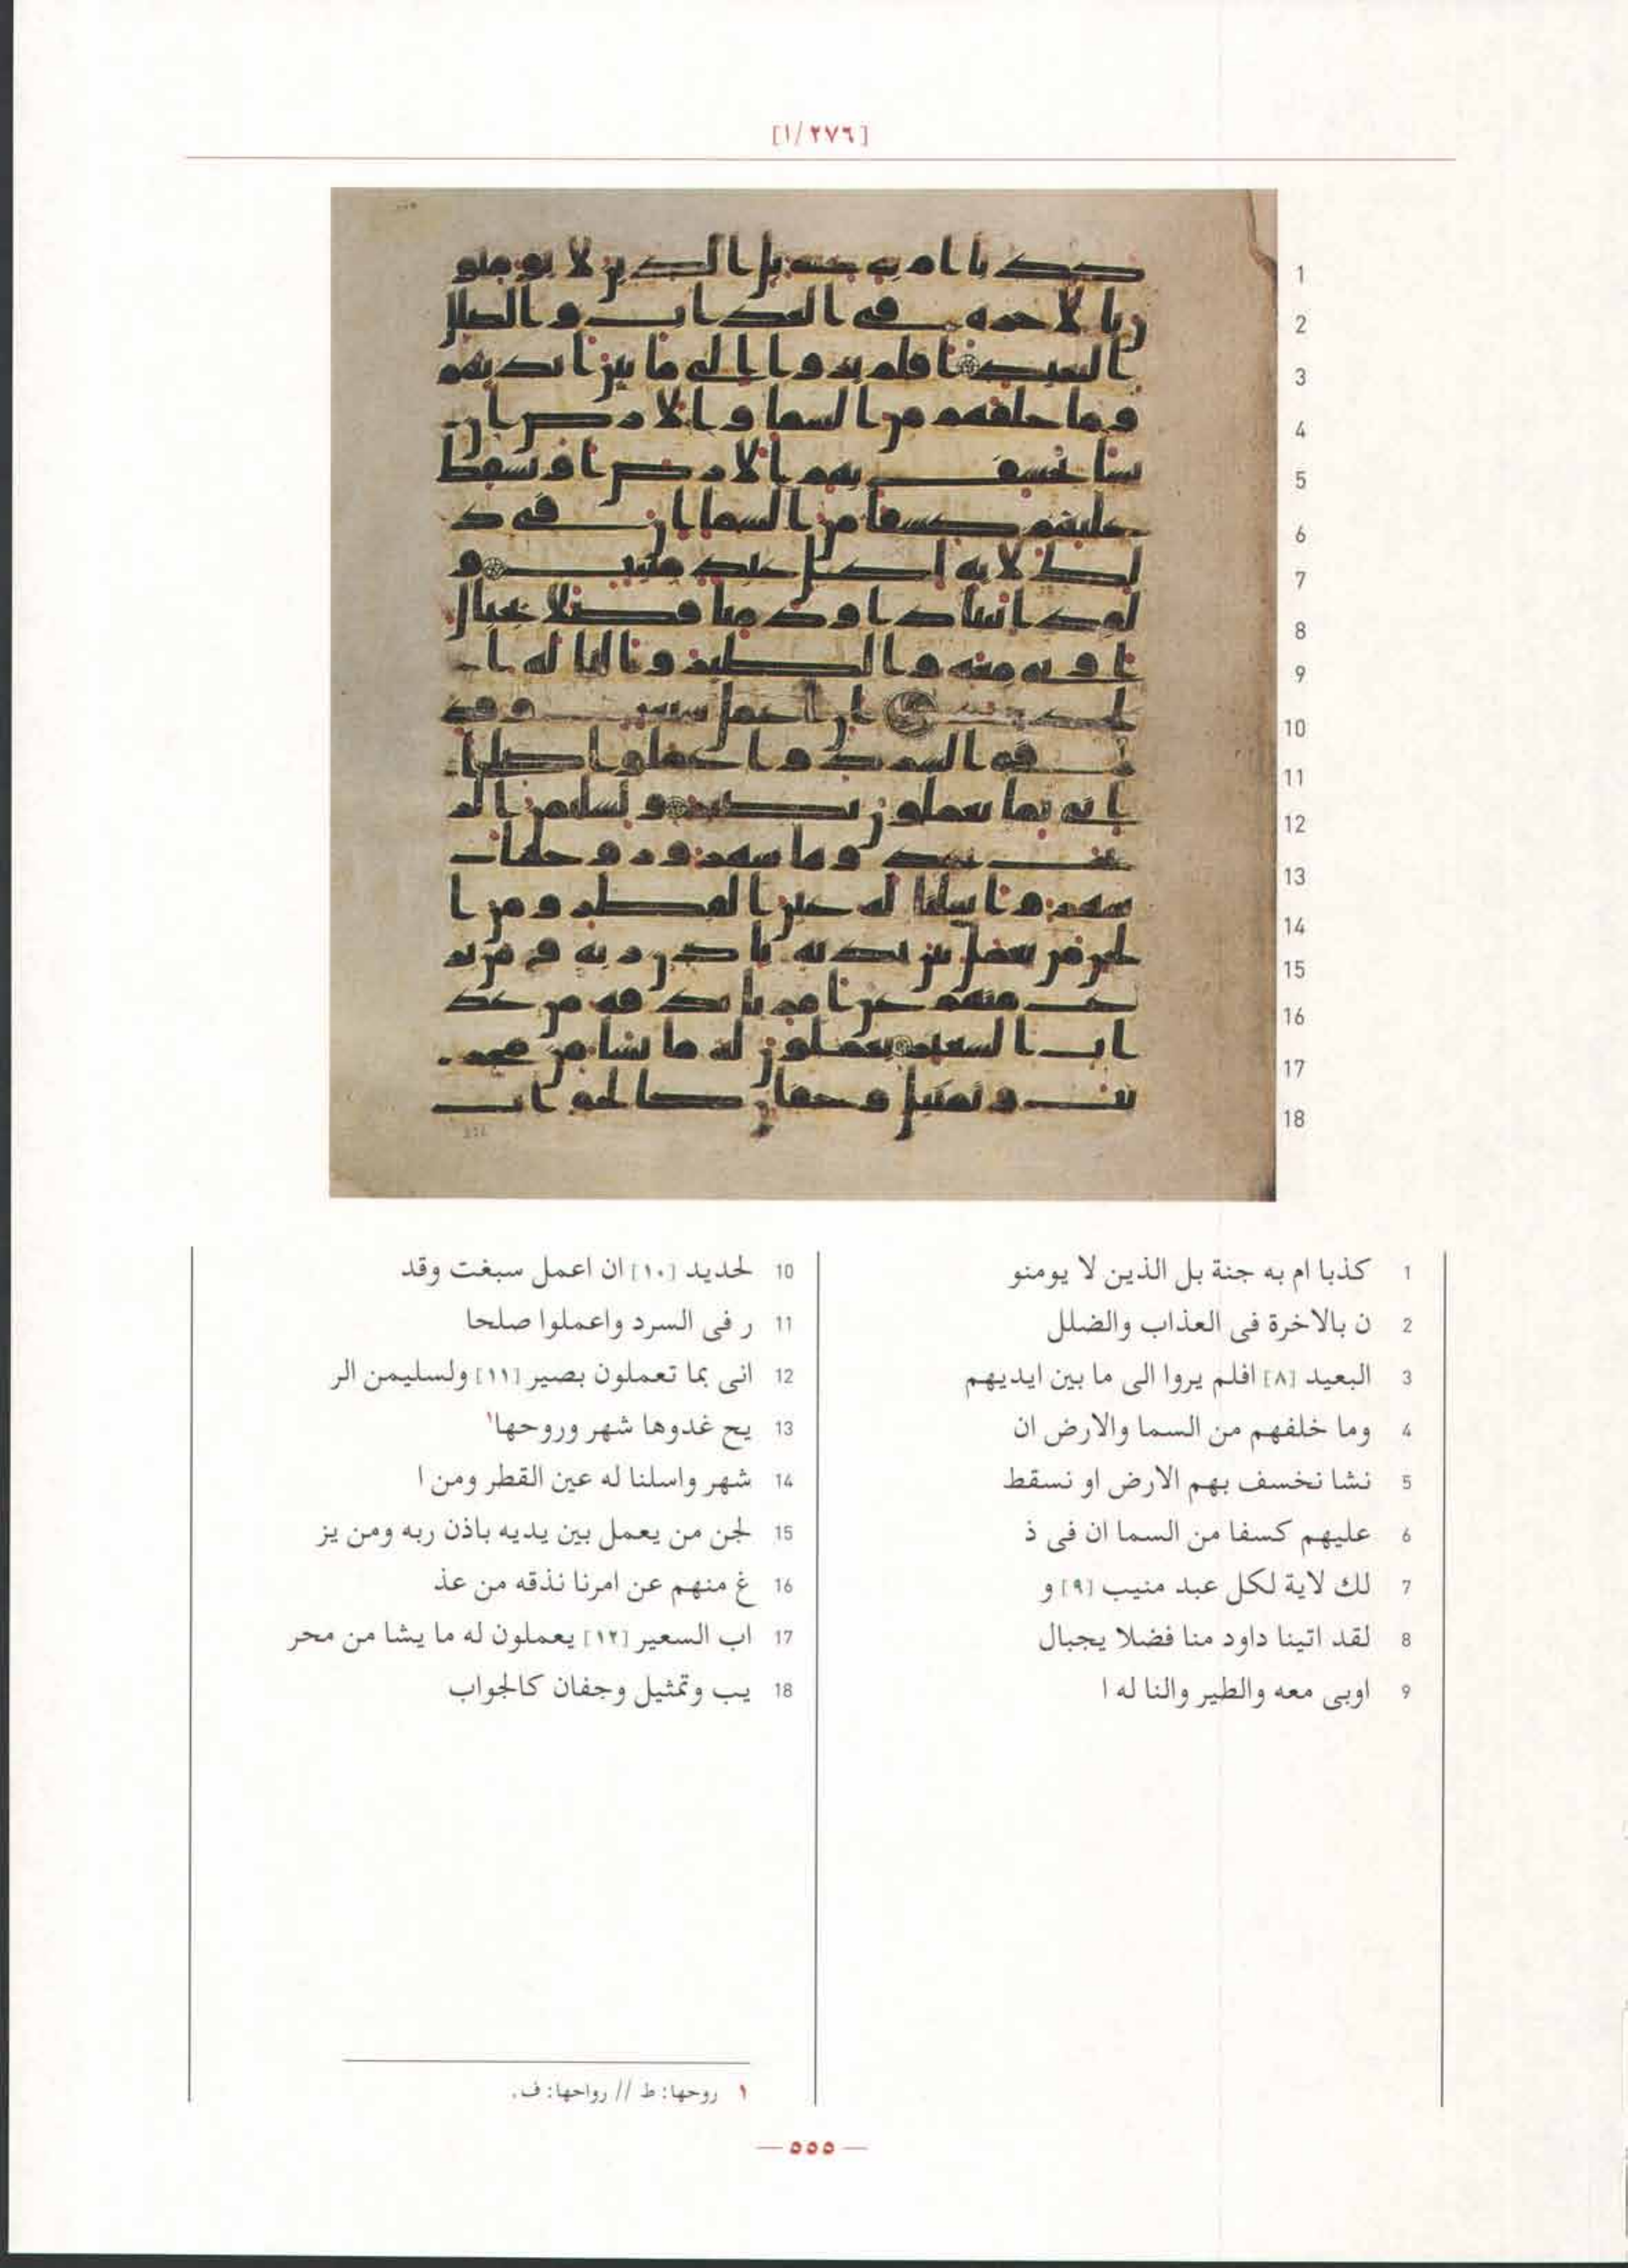 [٢٧٦/١]
1
2
3
4
5
6
7
8
9
10
11
12
13
14
15
16
17
18
1 كذبا ام به جنة بل الذين لا يومنو
2 ن بالاخرة فى العذاب والضلل
3 البعيد [٨] افلم يروا الى ما بين ايديهم
4 وما خلفهم من السما والارض ان
5 نشا نخسف بهم الارض او نسقط
6 عليهم كسفا من السما ان فى ذ
7 لك لاية لكل عبد منيب [٩] و
8 لقد اتينا داود منا فضلا يجبال
9 اوبى معه والطير والنا له ا
10 لحديد [١٠] ان اعمل سبغت وقد
11 ر فى السرد واعملوا صلحا
12 انى بما تعملون بصير [١١] ولسليمن الر
13 يح غدوها شهر وروحها١
14 شهر واسلنا له عين القطر ومن ا
15 لجن من يعمل بين يديه باذن ربه ومن يز
16 غ منهم عن امرنا نذقه من عذ
17 اب السعير [١٢] يعملون له ما يشا من محر
18 يب وتمثيل وجفان كالجواب
١ روحها: ط // رواحها: ف.
— ٥٥٥ —